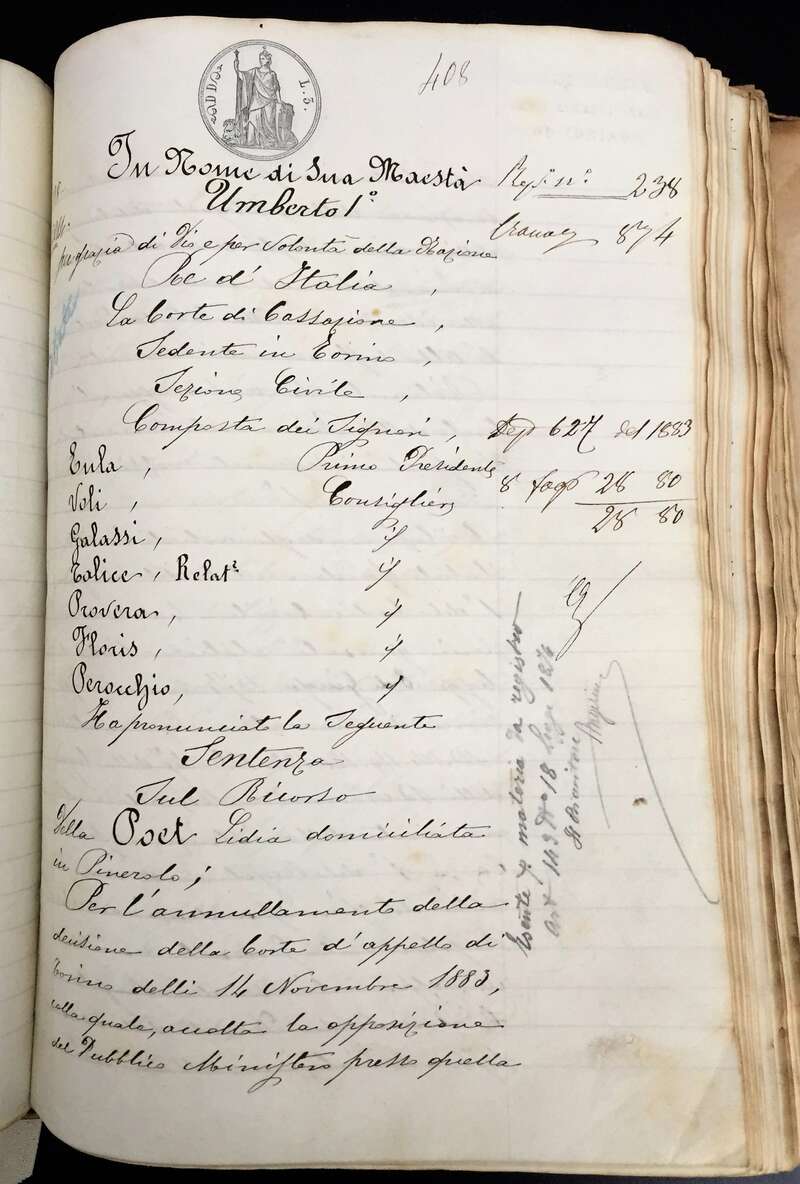 L. 3.
408
In Nome di Sua Maestà
Umberto I°
per grazia di Dio e per volontà della Nazione
Re d' Italia,
La Corte di Cassazione,
Sedente in Torino,
Sezione Civile,
Composta dei Signori,
Eula, Primo Presidente
Voli, Consigliere
Galassi, id
Talice, Relat.e id
Provera, id
Floris, id
Perocchio, id
Ha pronunciato la seguente
Sentenza
Sul Ricorso
Della Poet Lidia domiciliata
in Pinerolo;
Per l'annullamento della
decisione della Corte d'appello di
Torino delli 14 Novembre 1883,
colla quale, accolta la opposizione
del Pubblico Ministero presso quella
238
874
627 del 1883
8 28 80
28 80
Esente p materia da registro
art 143 N° 18 Legge 1874